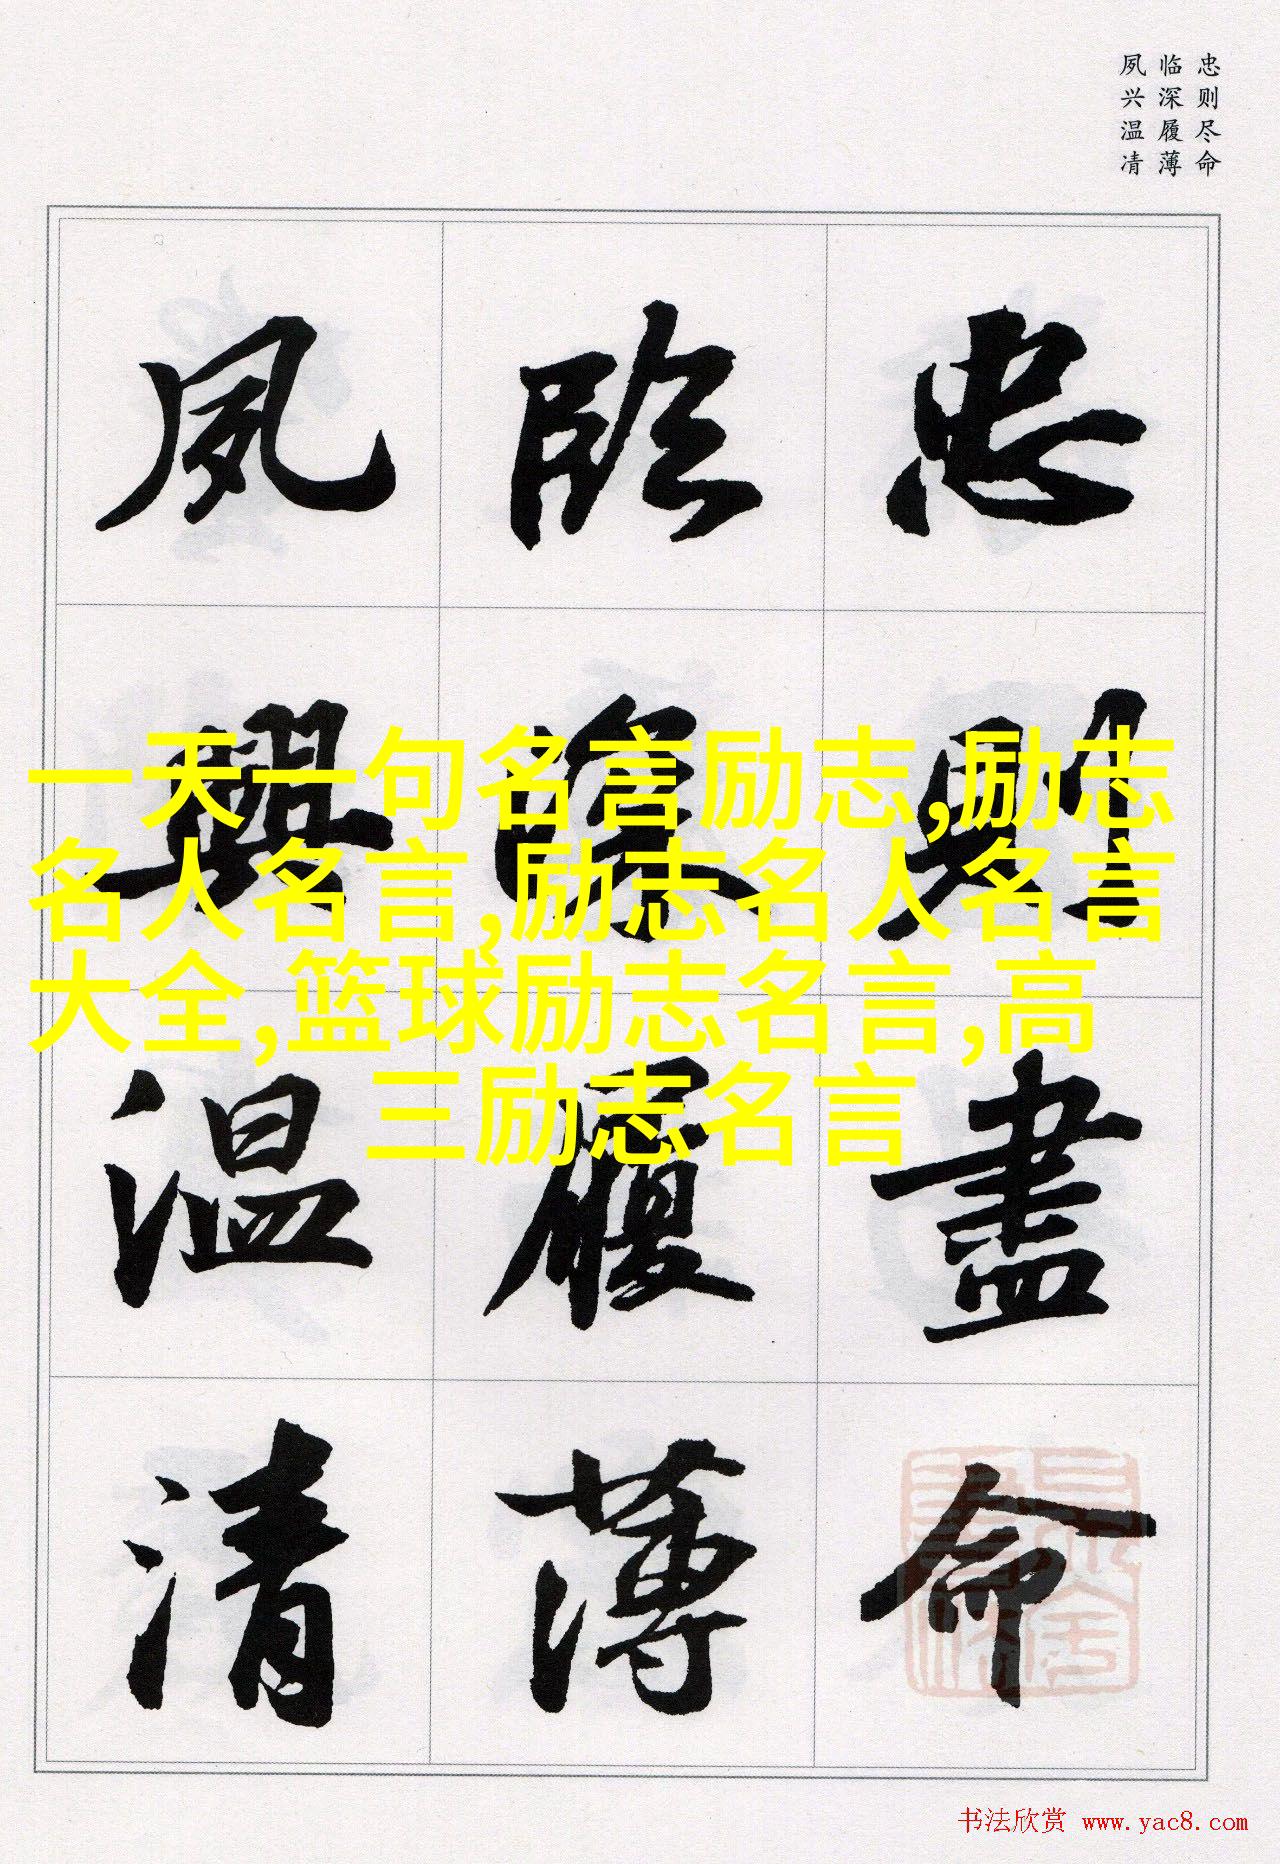 忠则尽命
临深履薄
夙兴温凊
忠則盡命
臨深履薄
夙興温清
一天一句名言励志,励志
名人名言,励志名人名言
大全,篮球励志名言,高
三励志名言
书法欣赏 www.yac8.com